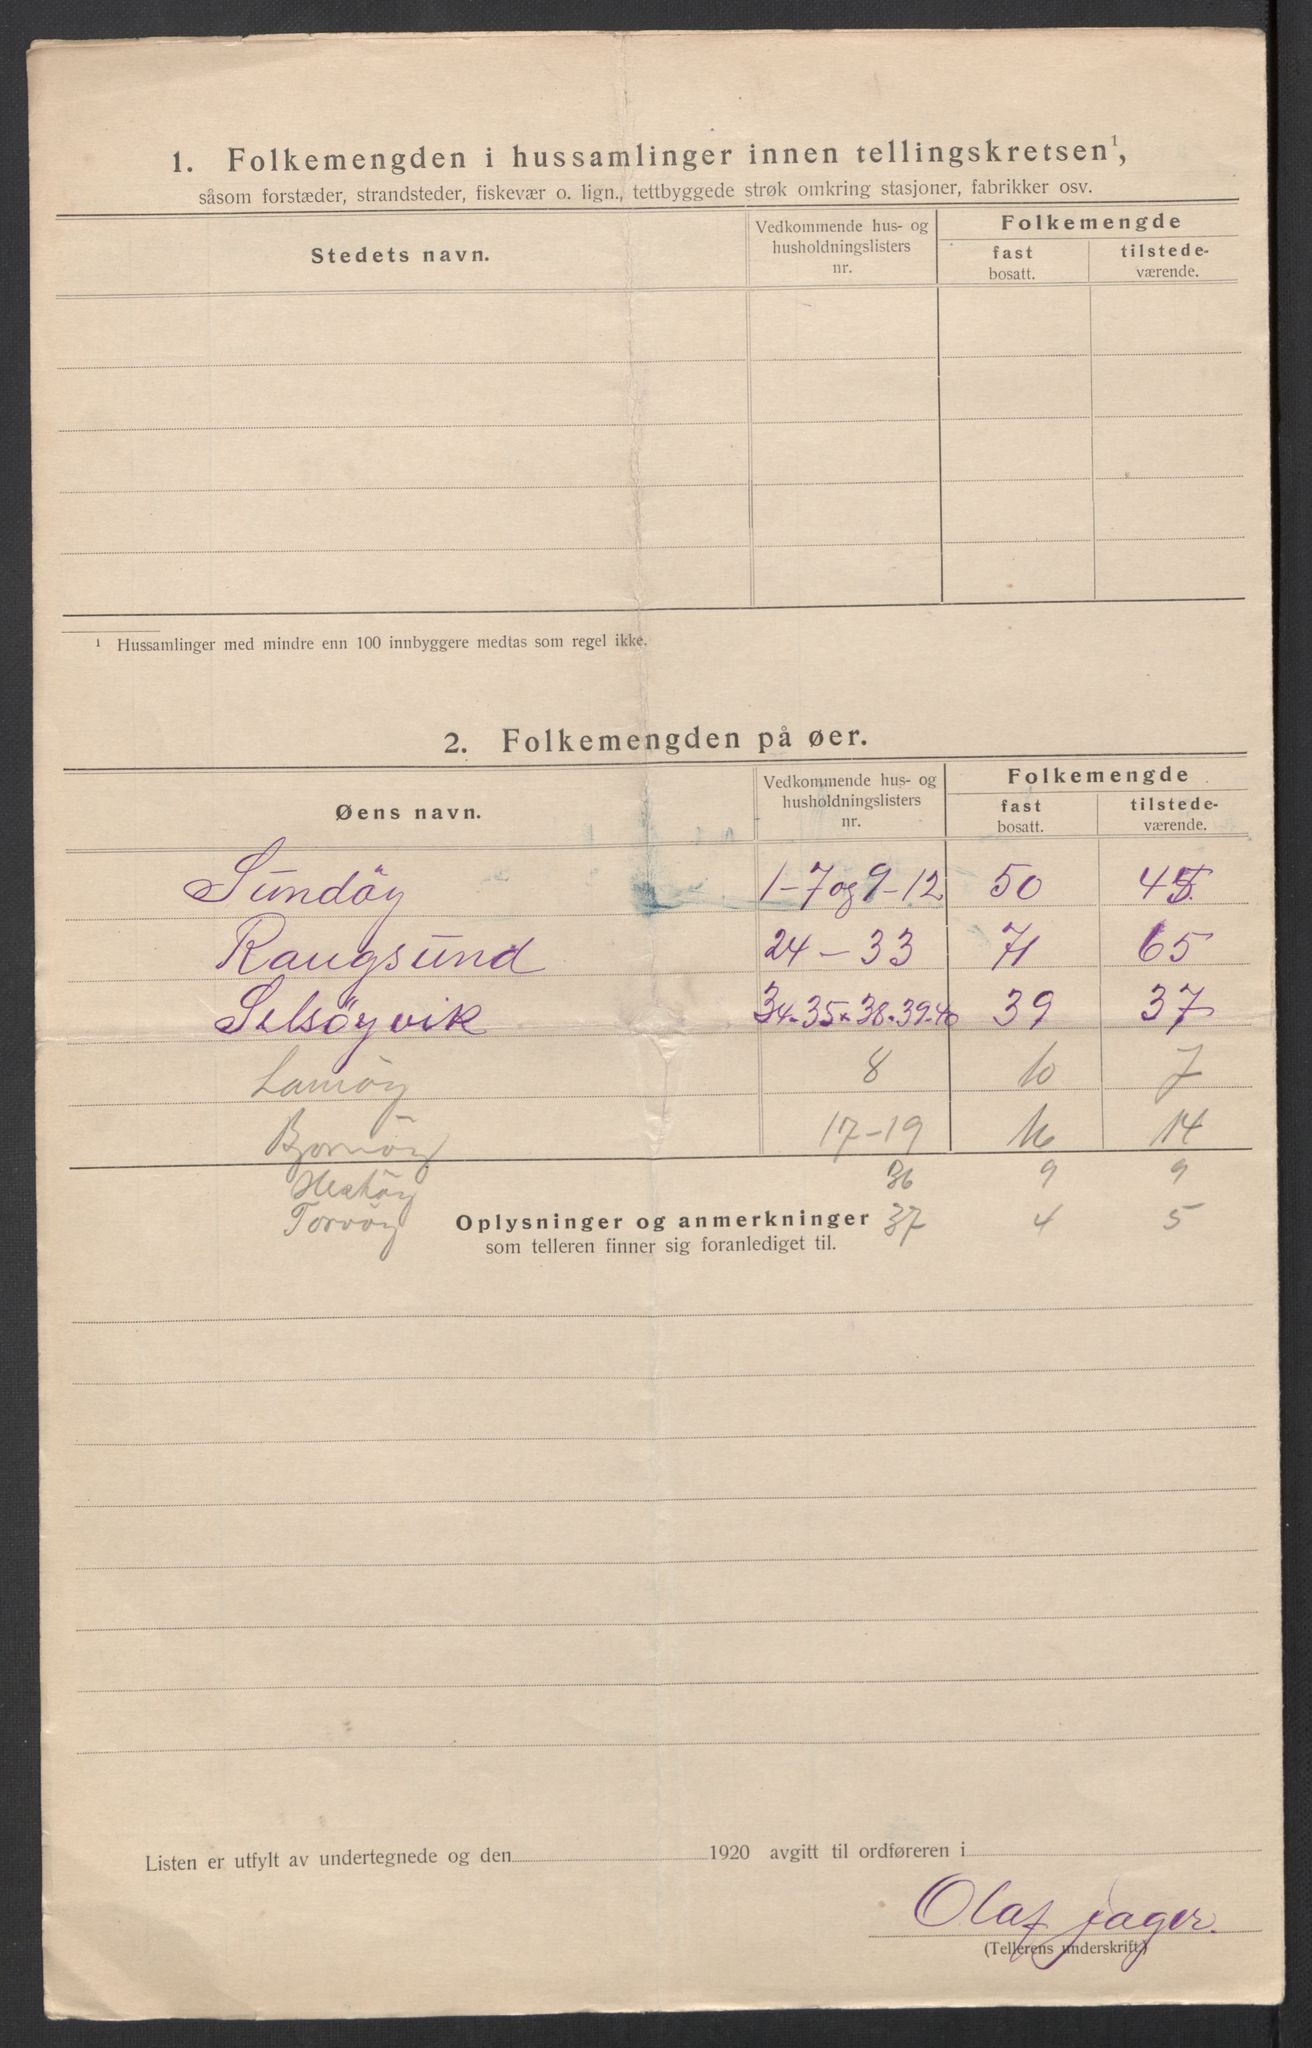 1. Folkemengden i hussamlinger innen tellingskretsen¹,
såsom forstæder, strandsteder, fiskevær o. lign., tettbyggede strøk omkring stasjoner, fabrikker osv.
Stedets navn.
Vedkommende hus- og
husholdningslisters
nr.
Folkemengde
fast
bosatt.
tilstede-
værende.
¹ Hussamlinger med mindre enn 100 innbyggere medtas som regel ikke.
2. Folkemengden på øer.
Øens navn.
Vedkommende hus- og
husholdningslisters
nr.
Folkemengde
fast
bosatt.
tilstede-
værende.
Sundöy 1-7 og 9-12 50 45
Rangsund 24 - 33 71 65
Selsöyvik 34-35 38-39-40 39 37
Lamöy 8 10 7
17-19 16 14
Hestöy 36 9 9
Torvöy 37 4 5
Oplysninger og anmerkninger
som telleren finner sig foranlediget til.
Listen er utfylt av undertegnede og den 1920 avgitt til ordføreren i
Olaf Jager.
(Tellerens underskrift.)